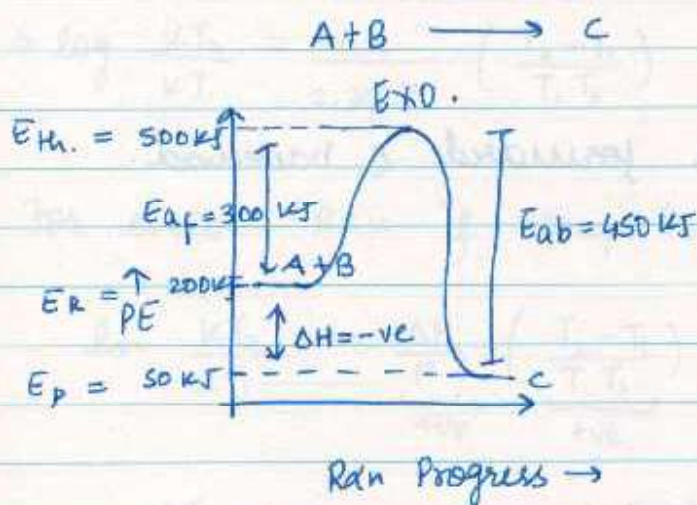 A+B ⟶ C
EXO.
E_th. = 500 kJ
E_af = 300 kJ
E_ab = 450 kJ
A+B
E_R = 200 kJ
↑
PE
ΔH = -ve
E_p = 50 kJ
C
Rxn Progress →